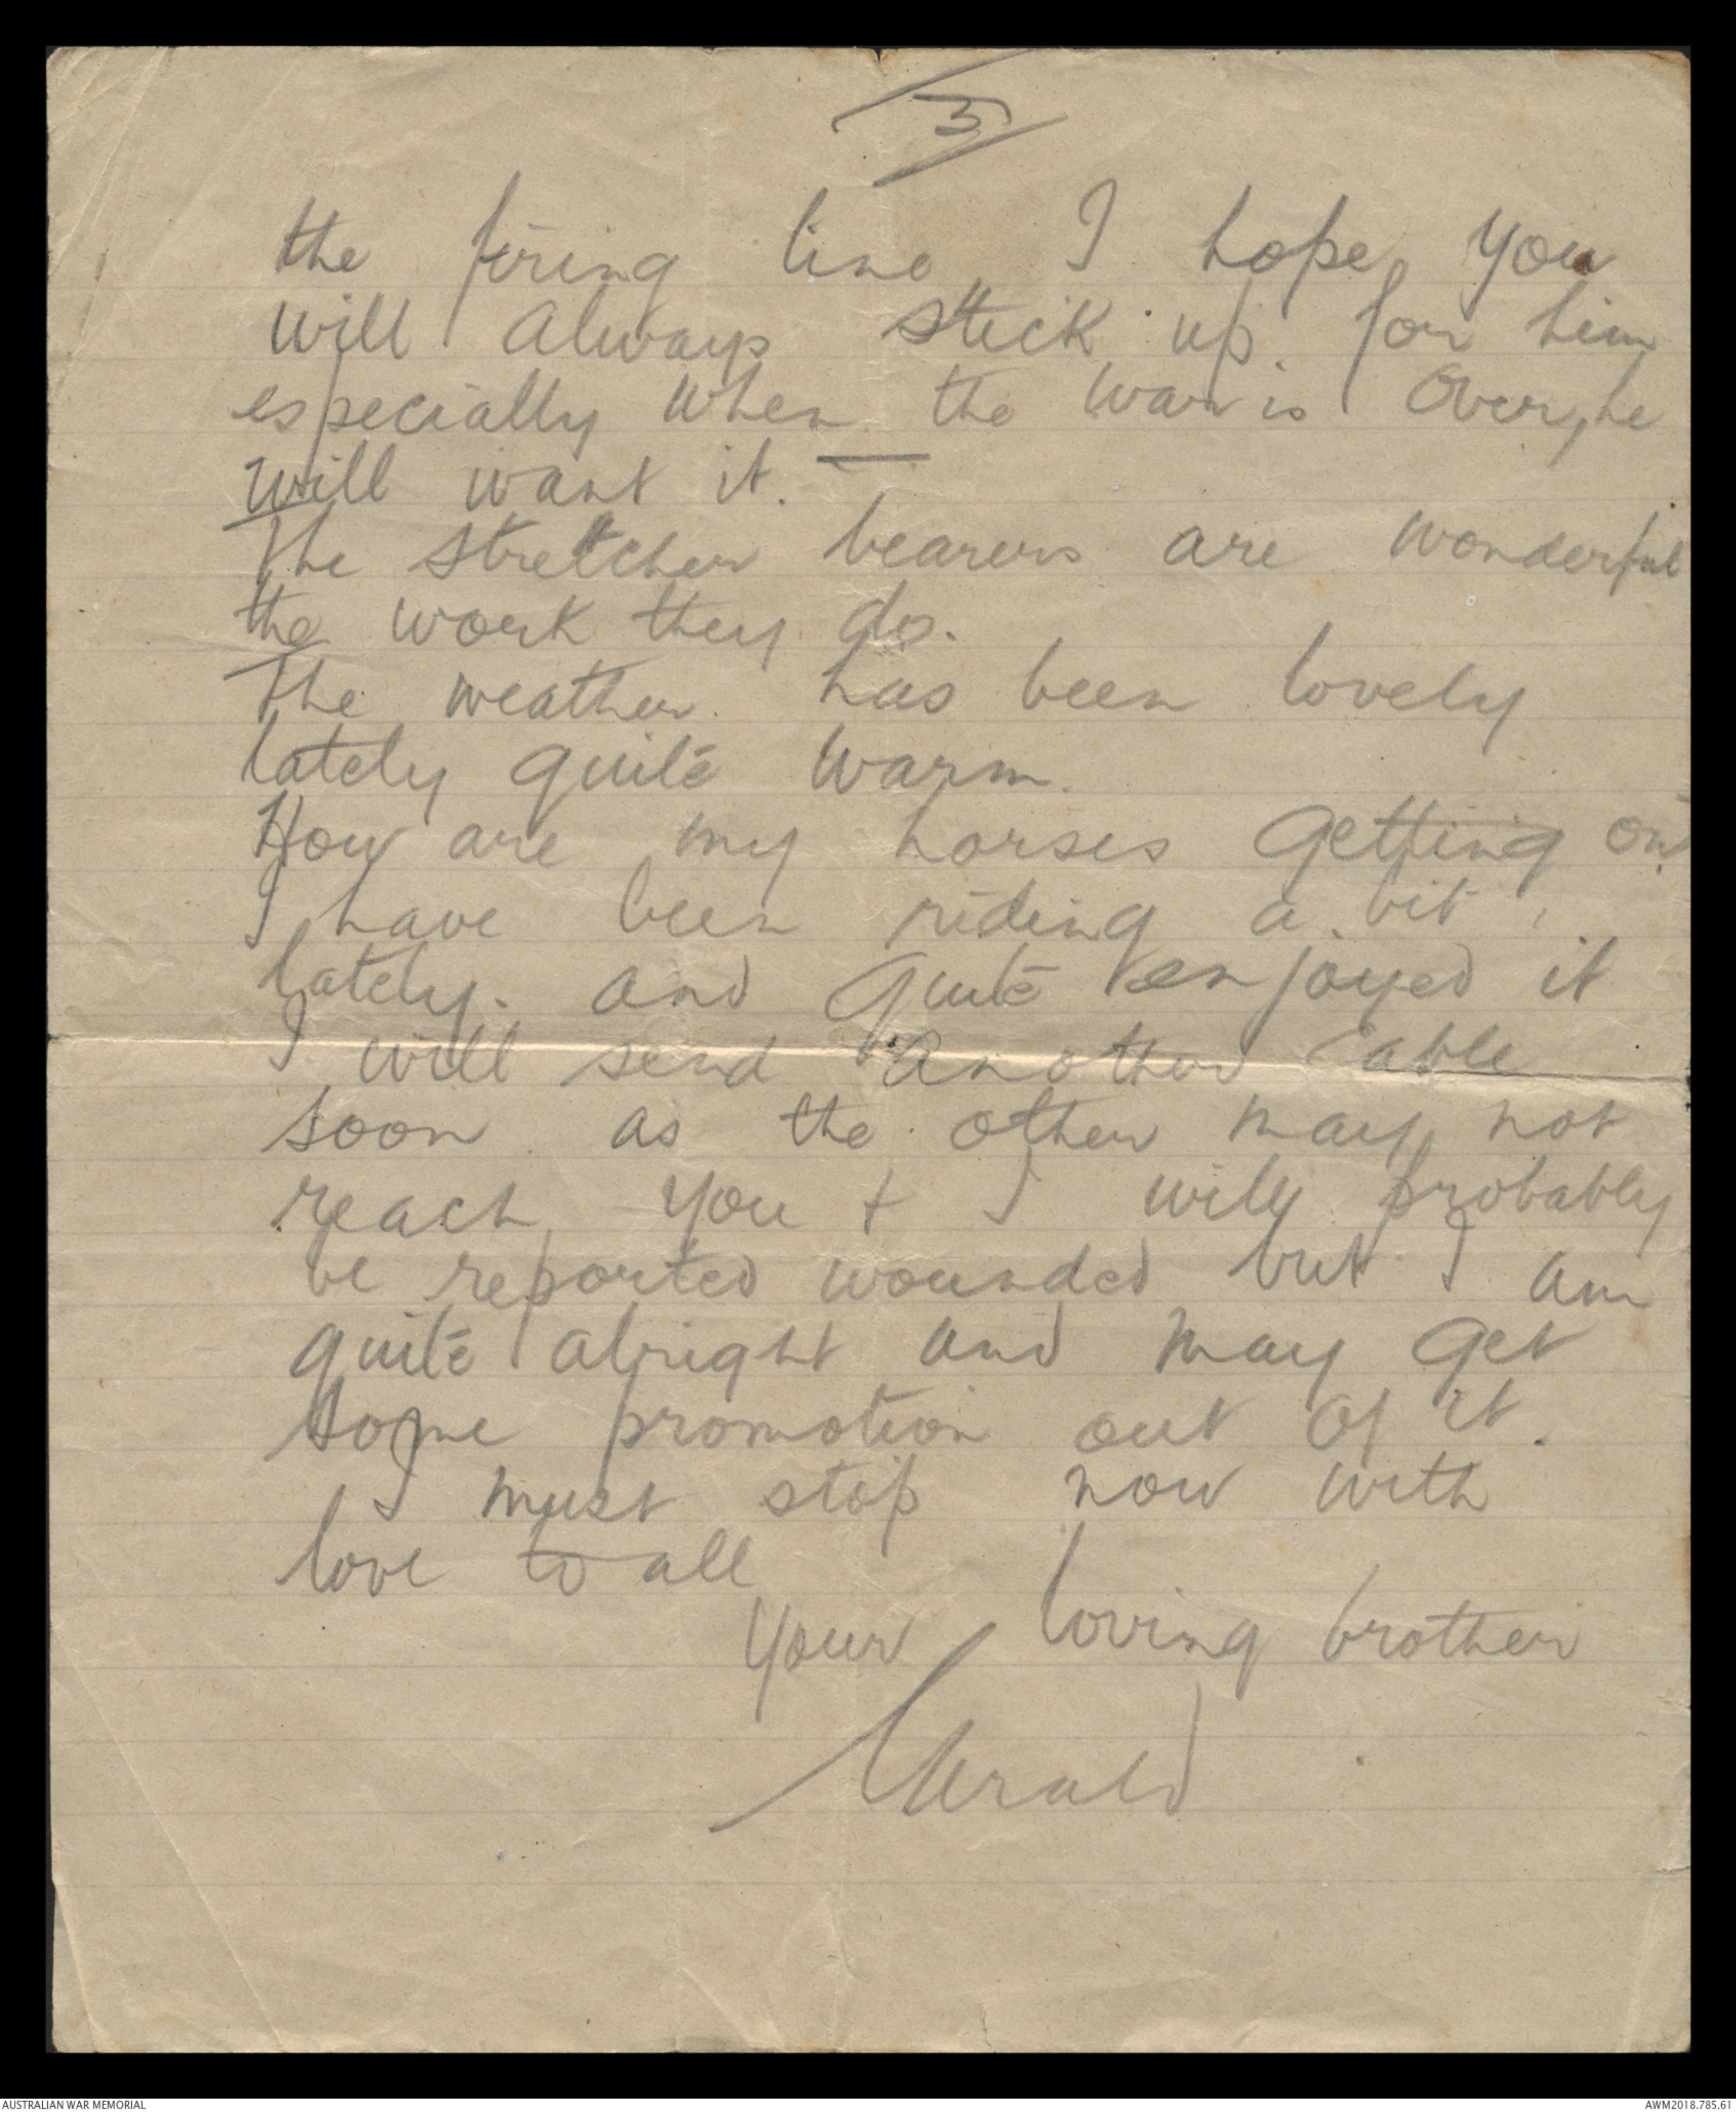 3
the firing line, I hope you
will always stick up for him
especially when the war is over, he
will want it.
The stretcher bearers are wonderful
the work they do.
The weather has been lovely
lately quite warm.
How are my horses getting on?
I have been riding a bit
lately. and quite enjoyed it
I will send another cable
soon as the other may not
reach you + I will probably
be reported wounded but I am
quite alright and may get
some promotion out of it.
I must stop now with
love to all
Your loving brother
Gerald
AUSTRALIAN WAR MEMORIAL
AWM2018.785.61